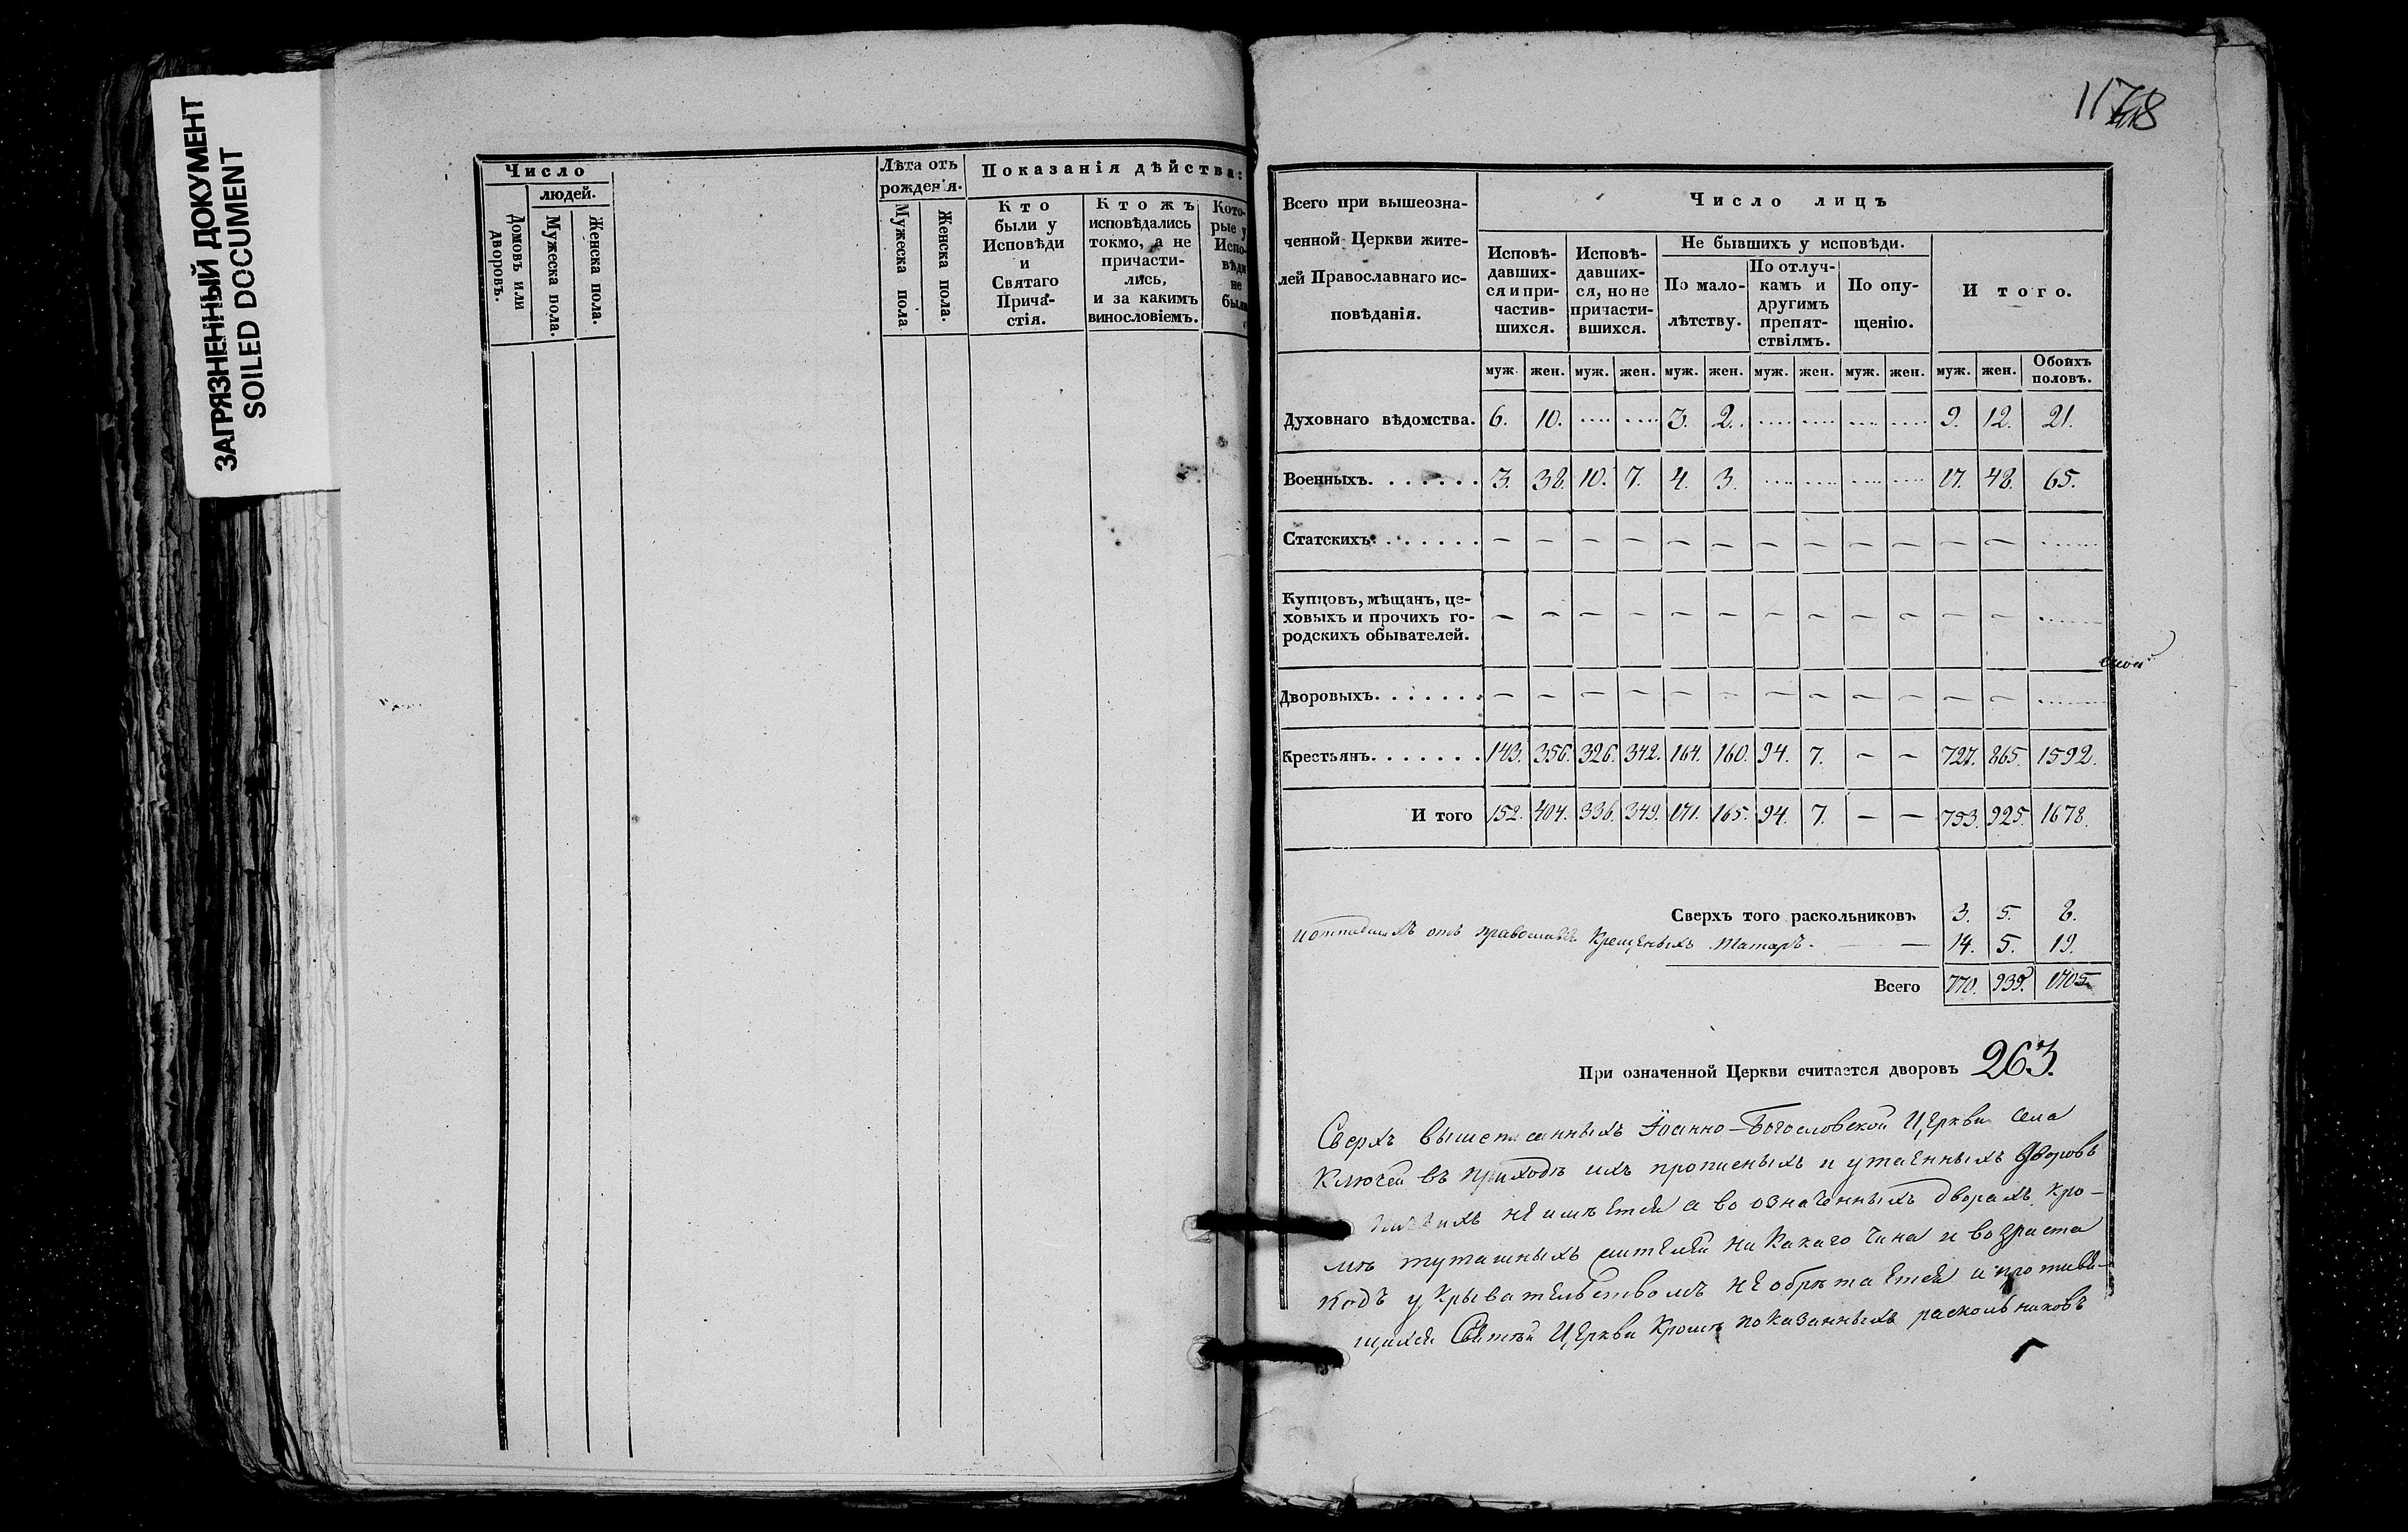 ЗАГРЯЗНЕННЫЙ ДОКУМЕНТ
SOILED DOCUMENT
Число
людей.
Домовъ или дворовъ.
Мужеска пола.
Женска пола.
Лѣта отъ
рожденія.
Мужеска пола
Женска пола.
Показанія дѣйства:
Кто
были у
Исповѣди
и
Святаго
Прича-
стія.
Кто жъ
исповѣдались
токмо, а не
причасти-
лись,
и за какимъ
винословіемъ.
Кото-
рые у
Испо-
вѣди
не
были
Всего при вышеозна-
ченной Церкви жите-
лей Православнаго ис-
повѣданія.
Число лицъ
Исповѣ-
давших-
ся и при-
частив-
шихся.
Исповѣ-
давших-
ся, но не
причасти-
вшихся.
Не бывшихъ у исповѣди.
По мало-
лѣтству.
По отлуч-
камъ и
другимъ
препят-
ствіямъ.
По опу-
щенію.
И того.
муж. жен. муж. жен. муж. жен. муж. жен. муж. жен. муж. жен. Обоихъ половъ.
Духовнаго вѣдомства. 6. 10. ..... ..... 3. 2. ..... ..... ..... ..... 9. 12. 21.
Военныхъ....... 3. 38. 10. 7. 4. 3. ..... ..... ..... ..... 17. 48. 65.
Статскихъ....... — — — — — — — — — — — — .......
Купцовъ, мѣщанъ, це-
ховыхъ и прочихъ го-
родскихъ обывателей. — — — — — — — — — — — — .......
Дворовыхъ....... — — — — — — — — — — — — .......
Крестьянъ....... 143. 356. 326. 342. 164. 160. 94. 7. — — 727. 865. 1592.
И того 152. 404. 336. 349. 171. 165. 94. 7. — — 753. 925. 1678.
Сверхъ того раскольниковъ 3. 5. 8.
отъ крещеныхъ татаръ. — — 14. 5. 19.
Всего 770. 935. 1705
При означенной Церкви считается дворовъ 263.
Сверхъ вышеписанныхъ Іоанно-Богословской Церкви села
Ключей въ приходѣ ихъ прописныхъ и утаенныхъ дворовъ
неимѣется а во означенныхъ дворахъ кро-
мѣ туташныхъ жителей никакаго чина и возраста
подъ укрывательствомъ необрѣтается и противя-
щихся Святѣй Церкви кромѣ показанныхъ раскольниковъ